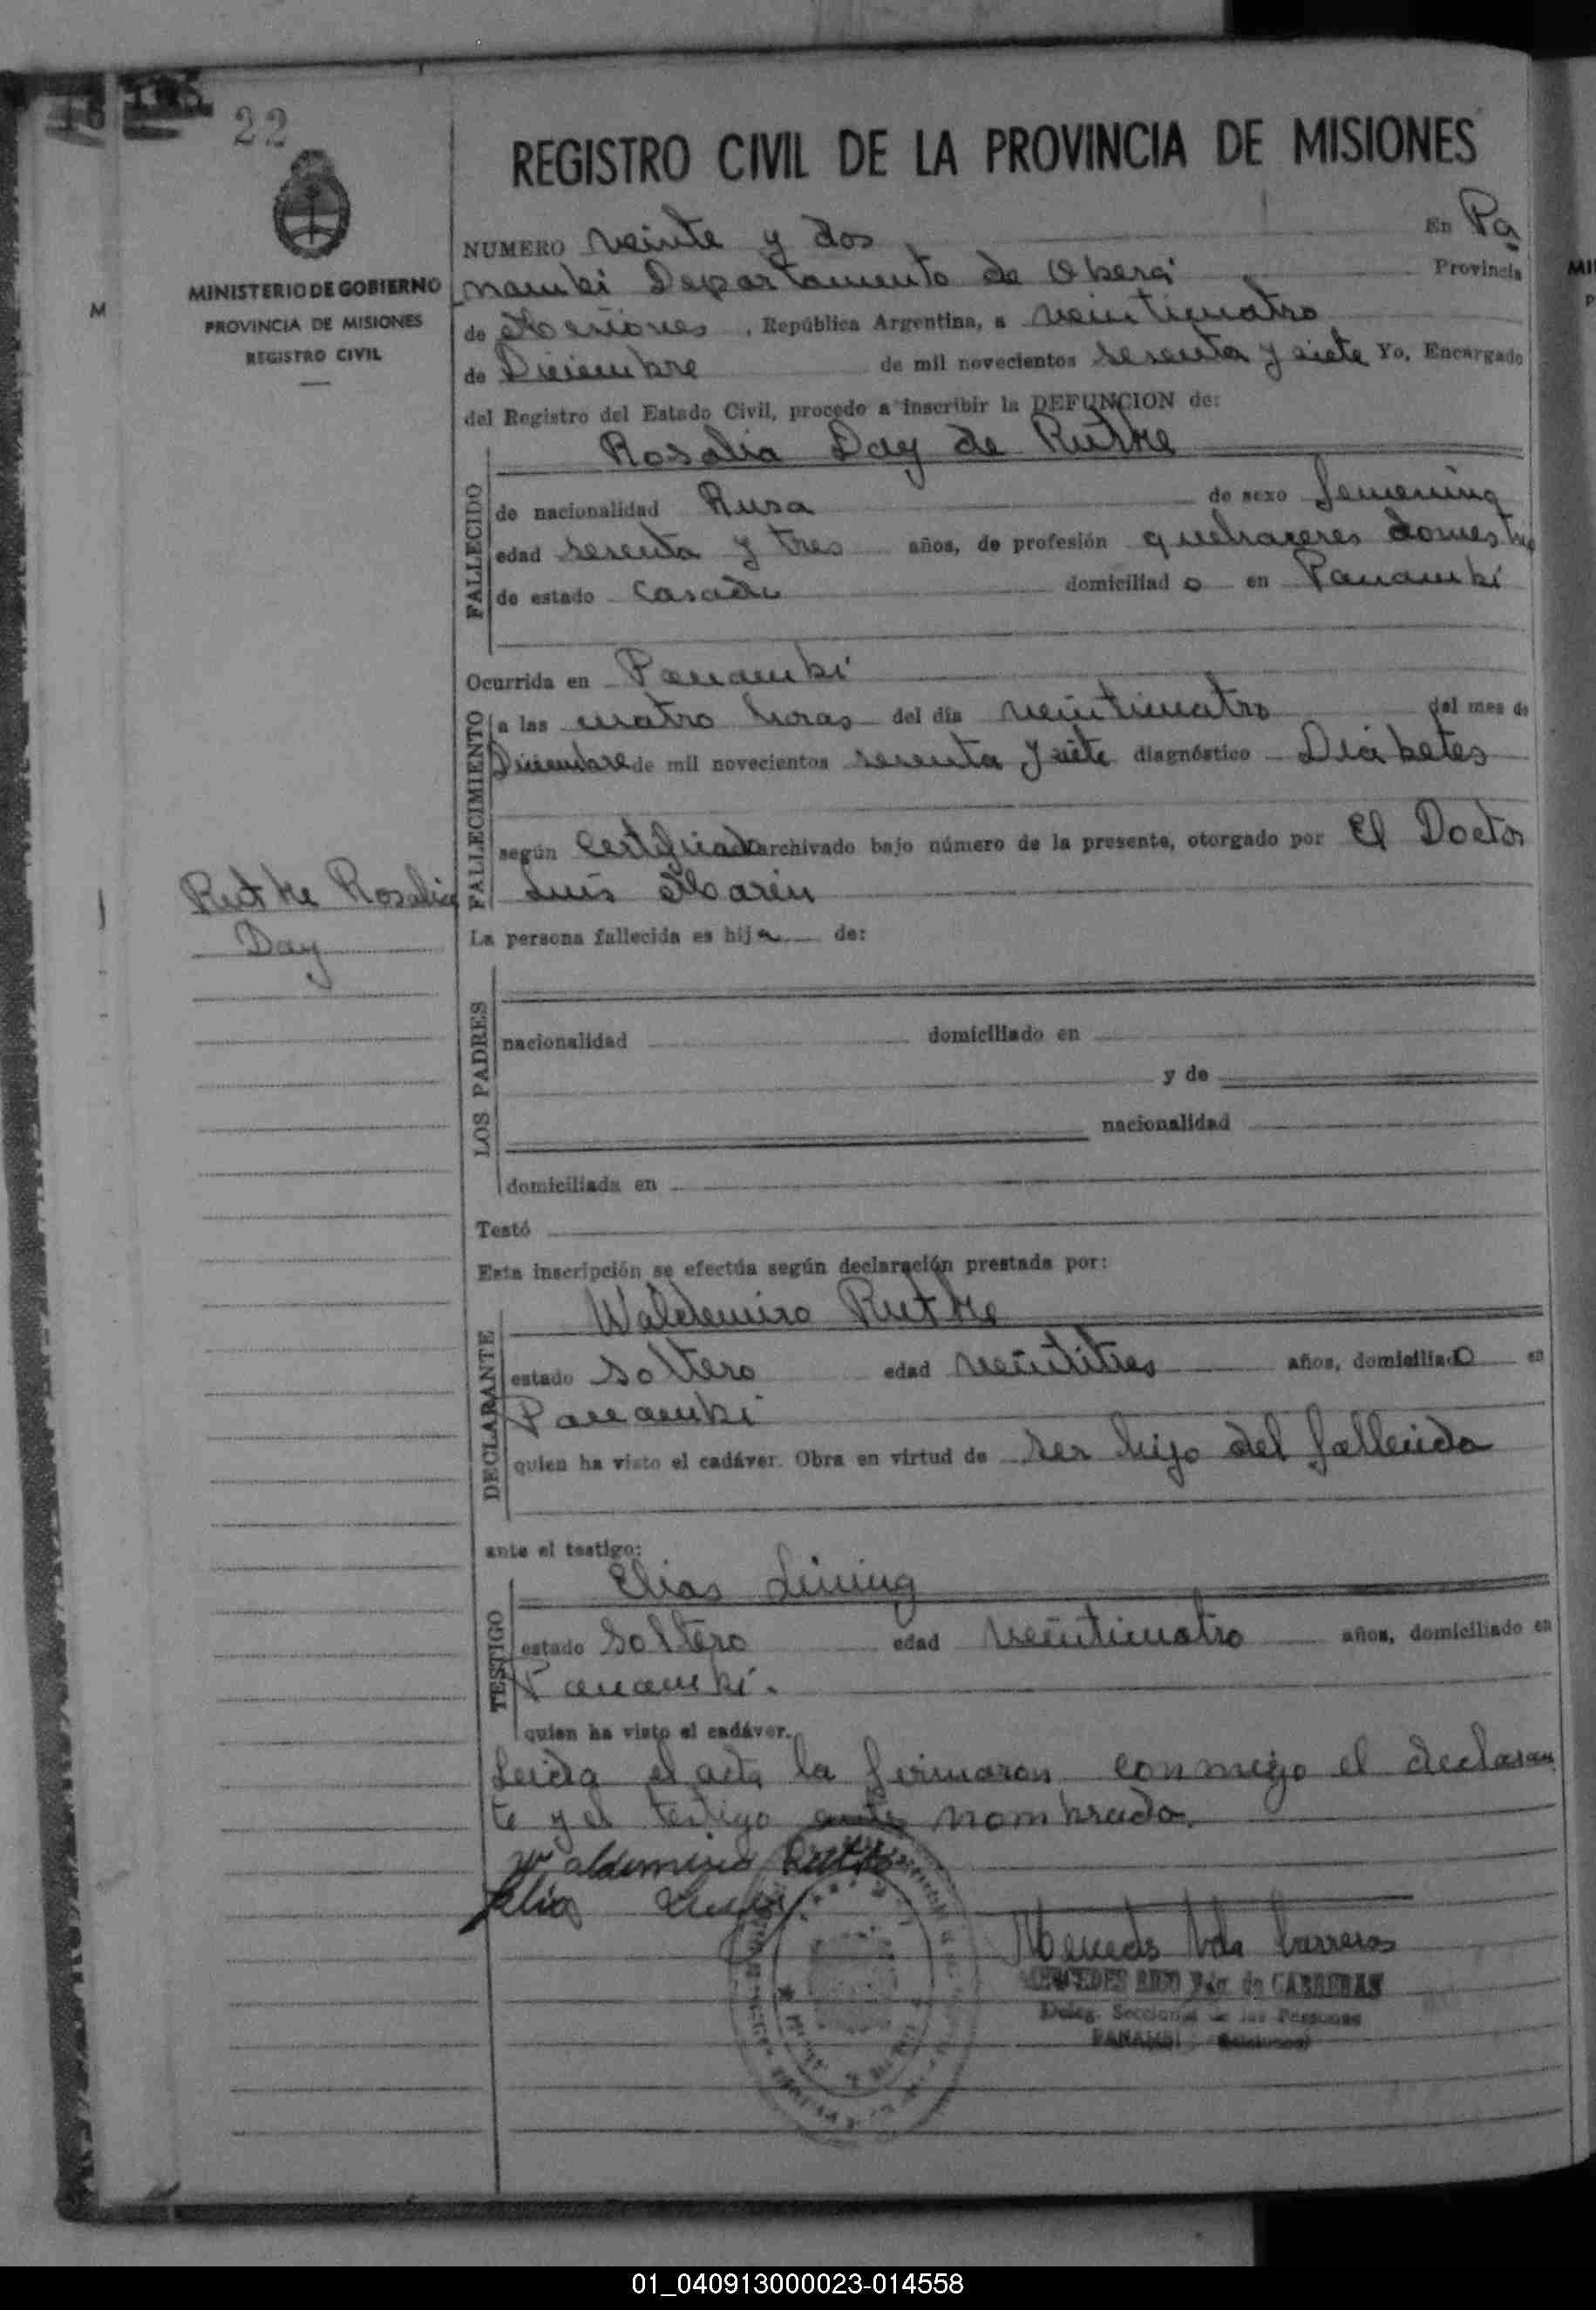 22
REGISTRO CIVIL DE LA PROVINCIA DE MISIONES
MINISTERIO DE GOBIERNO
PROVINCIA DE MISIONES
REGISTRO CIVIL
M
NUMERO veinte y dos En Pa
nambi Departamento de Oberá Provincia
de Misiones, República Argentina, a veinticuatro
de Diciembre de mil novecientos sesenta y siete Yo, Encargado
del Registro del Estado Civil, procedo a inscribir la DEFUNCION de:
Rosalia Day de Rutke
FALLECIDO
de nacionalidad Rusa de sexo femenino
edad sesenta y tres años, de profesión quehaceres domest
de estado Casada domiciliado en Panambí
Ocurrida en Panambí
FALLECIMIENTO
a las cuatro horas del día veinticuatro del mes de
Diciembre de mil novecientos sesenta y siete diagnóstico Diabetes
según Certificado archivado bajo número de la presente, otorgado por El Doctor
Luis Marin
Rutke Rosalia
Day
La persona fallecida es hija de:
LOS PADRES
nacionalidad domiciliado en
y de
nacionalidad
domiciliada en
Testó
Esta inscripción se efectúa según declaración prestada por:
Waldemiro Rutke
DECLARANTE
estado soltero edad veintitres años, domiciliado en
Panambí
quien ha visto el cadáver. Obra en virtud de ser hijo del fallecido
ante el testigo:
Elias Lining
TESTIGO
estado soltero edad veinticuatro años, domiciliado en
Panambí.
quien ha visto el cadáver.
Leida el acta la firmaron conmigo el declaran
te y el testigo nombrado.
Waldemiro Rutke
Elias
Mercedes Vda Carreras
MERCEDES Vda. de CARRERAS
Deleg. Seccional de las Personas
PANAMBI (Misiones)
01_040913000023-014558